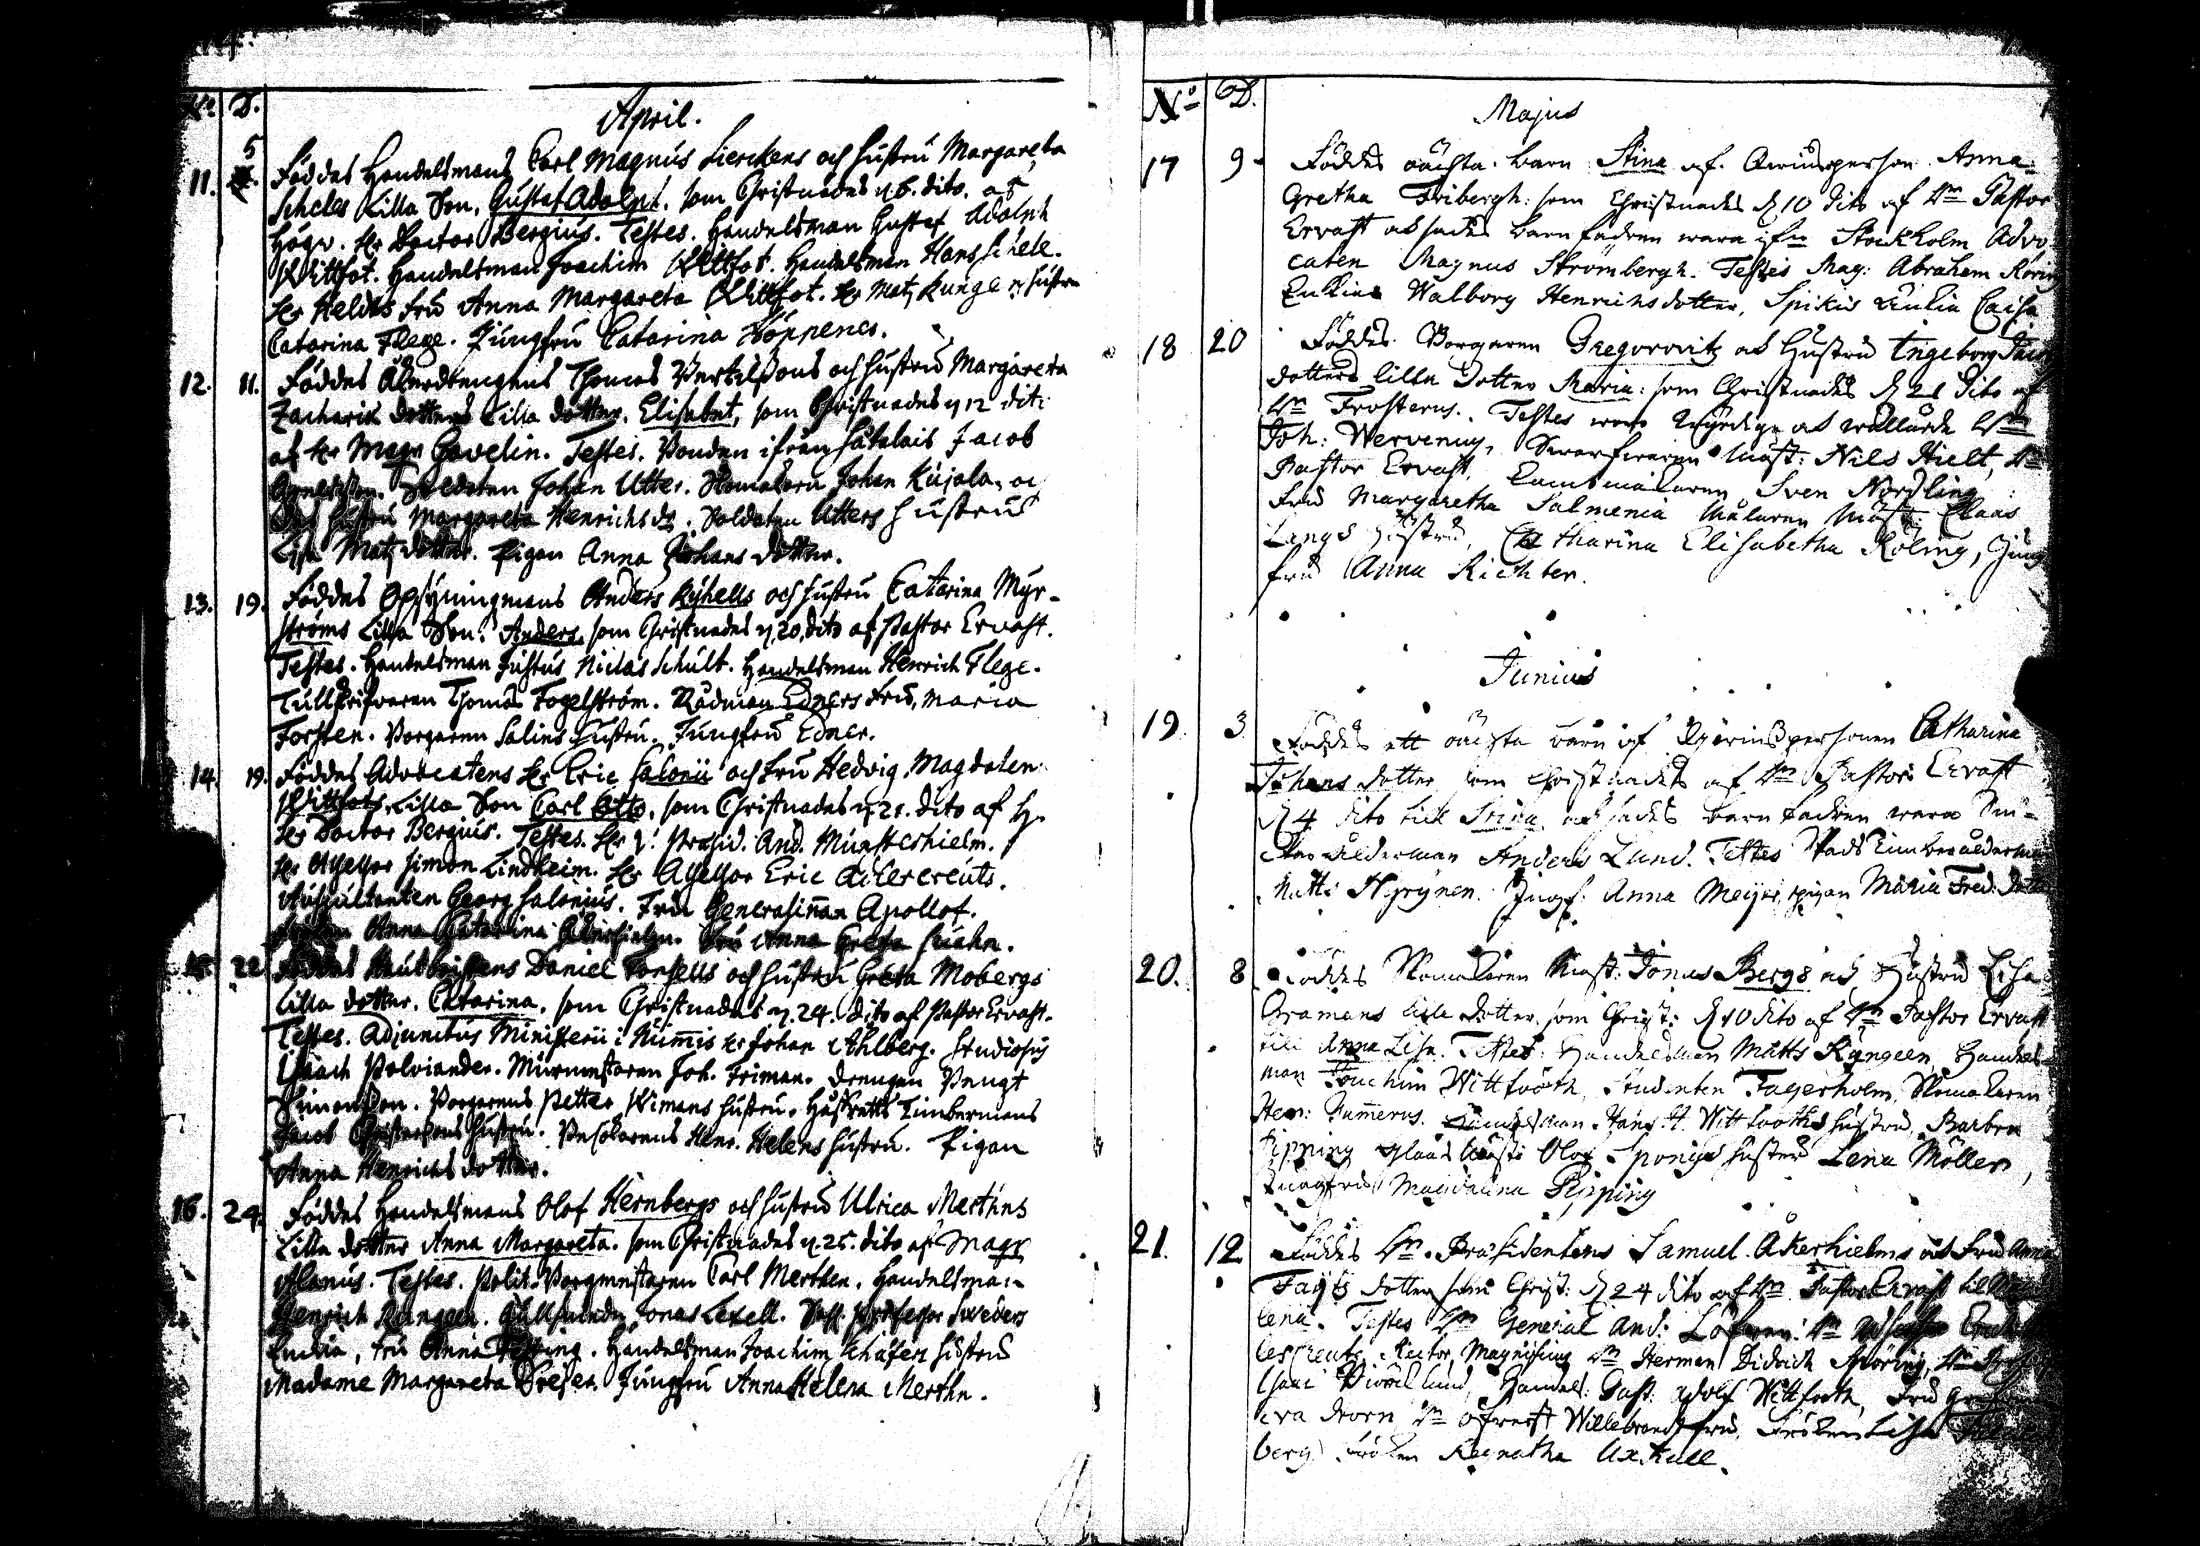 N:o D.
April.
11. 5 Föddes Handelsmans Carl Magnus Lierckens och hustru Margareta
Scheles Lilla Son, Gustaf Adolph. som Christnades d 6. dito. af
Högv. Hr Doctor Bergius. Testes. Handelsman Gustaf Adolph
Wittfot. Handelsman Joachim Wittfot. Handelsman Hans Schele.
Hr Heldts fru Anna Margareta Wittfot. Hr Matz Kunge hustru
Catarina Flege. Jungfru Catarina Höppener.
12. 11. Föddes Thomas Bertelssons och hustrus Margareta
Zacharie dotters Lilla dotter. Elisabet, som Christnades d 12 dito
af Hr Magr Gavelin. Testes. Bonden ifrån Jacob
Soldaten Johan Utter. Skomakern Johan Kujala, och
Des hustru Margareta Henrichs dr. Soldaten Utters hustrus
Lisa Matz dotter. Pigan Anna Johans dotter.
13. 19. Föddes Opsyningmans Anders Kyhells och hustru Catarina Myr-
ströms Lilla Son. Anders, som Christnades d 20 dito af Pastor Ervast.
Testes. Handelsman Justus Niclas Schult. Handelsman Henrich Flege.
Tullskrifvaren Thomas Fogelström. Rådman Edners fru, Maria
Forsten. Borgaren Salins hustru. Jungfru Edner.
14. 19. Föddes Advocatens Hr Eric Salonii och fru Hedvig Magdalen
Wittfots Lilla Son Carl Otto, som Christnades d 21. dito af H.
Hr Doctor Bergius. Testes. Hr Præsid. And. Munsterhielm.
Hr Assessor Simon Lindheim. Hr Assessor Eric Adlercreuts.
Auscultanten Georg Salonius. Fru Generalinnan Apollof.
Anna Catarina Fru Anna Greta
22 Föddes Daniel Forsells och hustru Greta Mobergs
Lilla dotter. Catarina, som Christnades d. 24. dito af Pastor Ervast.
Testes. Adjunctus Ministerii i Nummis Hr Johan Ahlberg. Studiosus
Isaach Polviander. Murmestaren Joh. Friman. Drengen Bengt
Simonsson. Borgarens Petter Wimans hustru. Håffrätts Timbermans
Jacob Christersons hustru. Henr. Helens hustru. Pigan
Anna Henrichs dotter.
16. 24. Föddes Handelsmans Olof Hernbergs och hustrus Ulrica Merthns
Lilla dotter Anna Margareta. som Christnades d. 25. dito af Magr
Alanus. Testes. Polit. Borgmestaren Carl Merthen. Handelsman
Henrich Rungeen. Jonas Lexell. Professor Sweders
Enkia, fru Anna Handelsman Joachim Schäfers hustrus
Madame Margareta Jungfru Anna Helena Merthn.
N:o D.
Majus
17 9 Föddes oächta barn Stina af Qvinsperson Anna
Gretha Fribergh: som Christnades d 10 dito af Hrn Pastor
Ervast at sades barnfadren wara ifrn Stockholm Advo
caten Magnus Strömbergh. Testes Mag: Abraham
Enkian Walborg Henrichsdotter, Spikis Enkia Caisa
18 20 Föddes Borgaren Gregorovitz ad Hustrus Ingeborg
dotters lilla dotter Maria: som Christnades d 21 dito af
Hrn Frosterus. Testes woro
Joh: Wervenus, Swarfvaren Mäst: Nils Hielt, Hrn
Pastor Ervast, Sven Nordling
Frus Margaretha Salmenia Målaren Mäst: Claas
Langs Hustru, Catharina Elisabetha Röling, Jung
fru Anna Richter.
Junius
19 3 Föddes ett oächta barn af Qvinspersonen Catharina
Johans dotter som Christnades af Hrn Pastor Ervast
d 4 dito till Stina at sades barnfadren wara
ålderman Anders Lund. Testes Stads Timber ålderman
Matts Nyrynen. Jungf: Anna Meijer, pigan Maria Fred: dotter
20. 8 Föddes Skomakaren Mäst: Jonas Bergs ad Hustrus Lisa
Gramans lilla dotter som Christ: d 10 dito af Hrn Pastor Ervast
till Anna Lisa. Testes: Handelsman Matts Kyngeen, Handels-
man Joachim Wittfooth, Studenten Fagerholm, Skomakaren
Hen: Fumerus. Handelsman Hans H. Wittfooths hustru, Barbra
Pipping glaas Mäst: Olof Spongs hustru Lena Möller,
Jungfru Magdalena Pipping
21. 12 Föddes Hrn Præsidentens Samuel Åkerhielms ad Frus Anna
Fayts dotter som Christ: d 24 dito af Hrn Pastor Ervast til
lena. Testes Hrn General And: Hrn
Rector Magnificus Hrn Herman Didrich Spöring,
Isaac Biörklund, Handels: Gust: Adolf Wittfooth, Fru
Eva Horn Hrn öfverst Willebrands fru. Fröken Lisa
berg. Fröken Regnatha Uxkull.